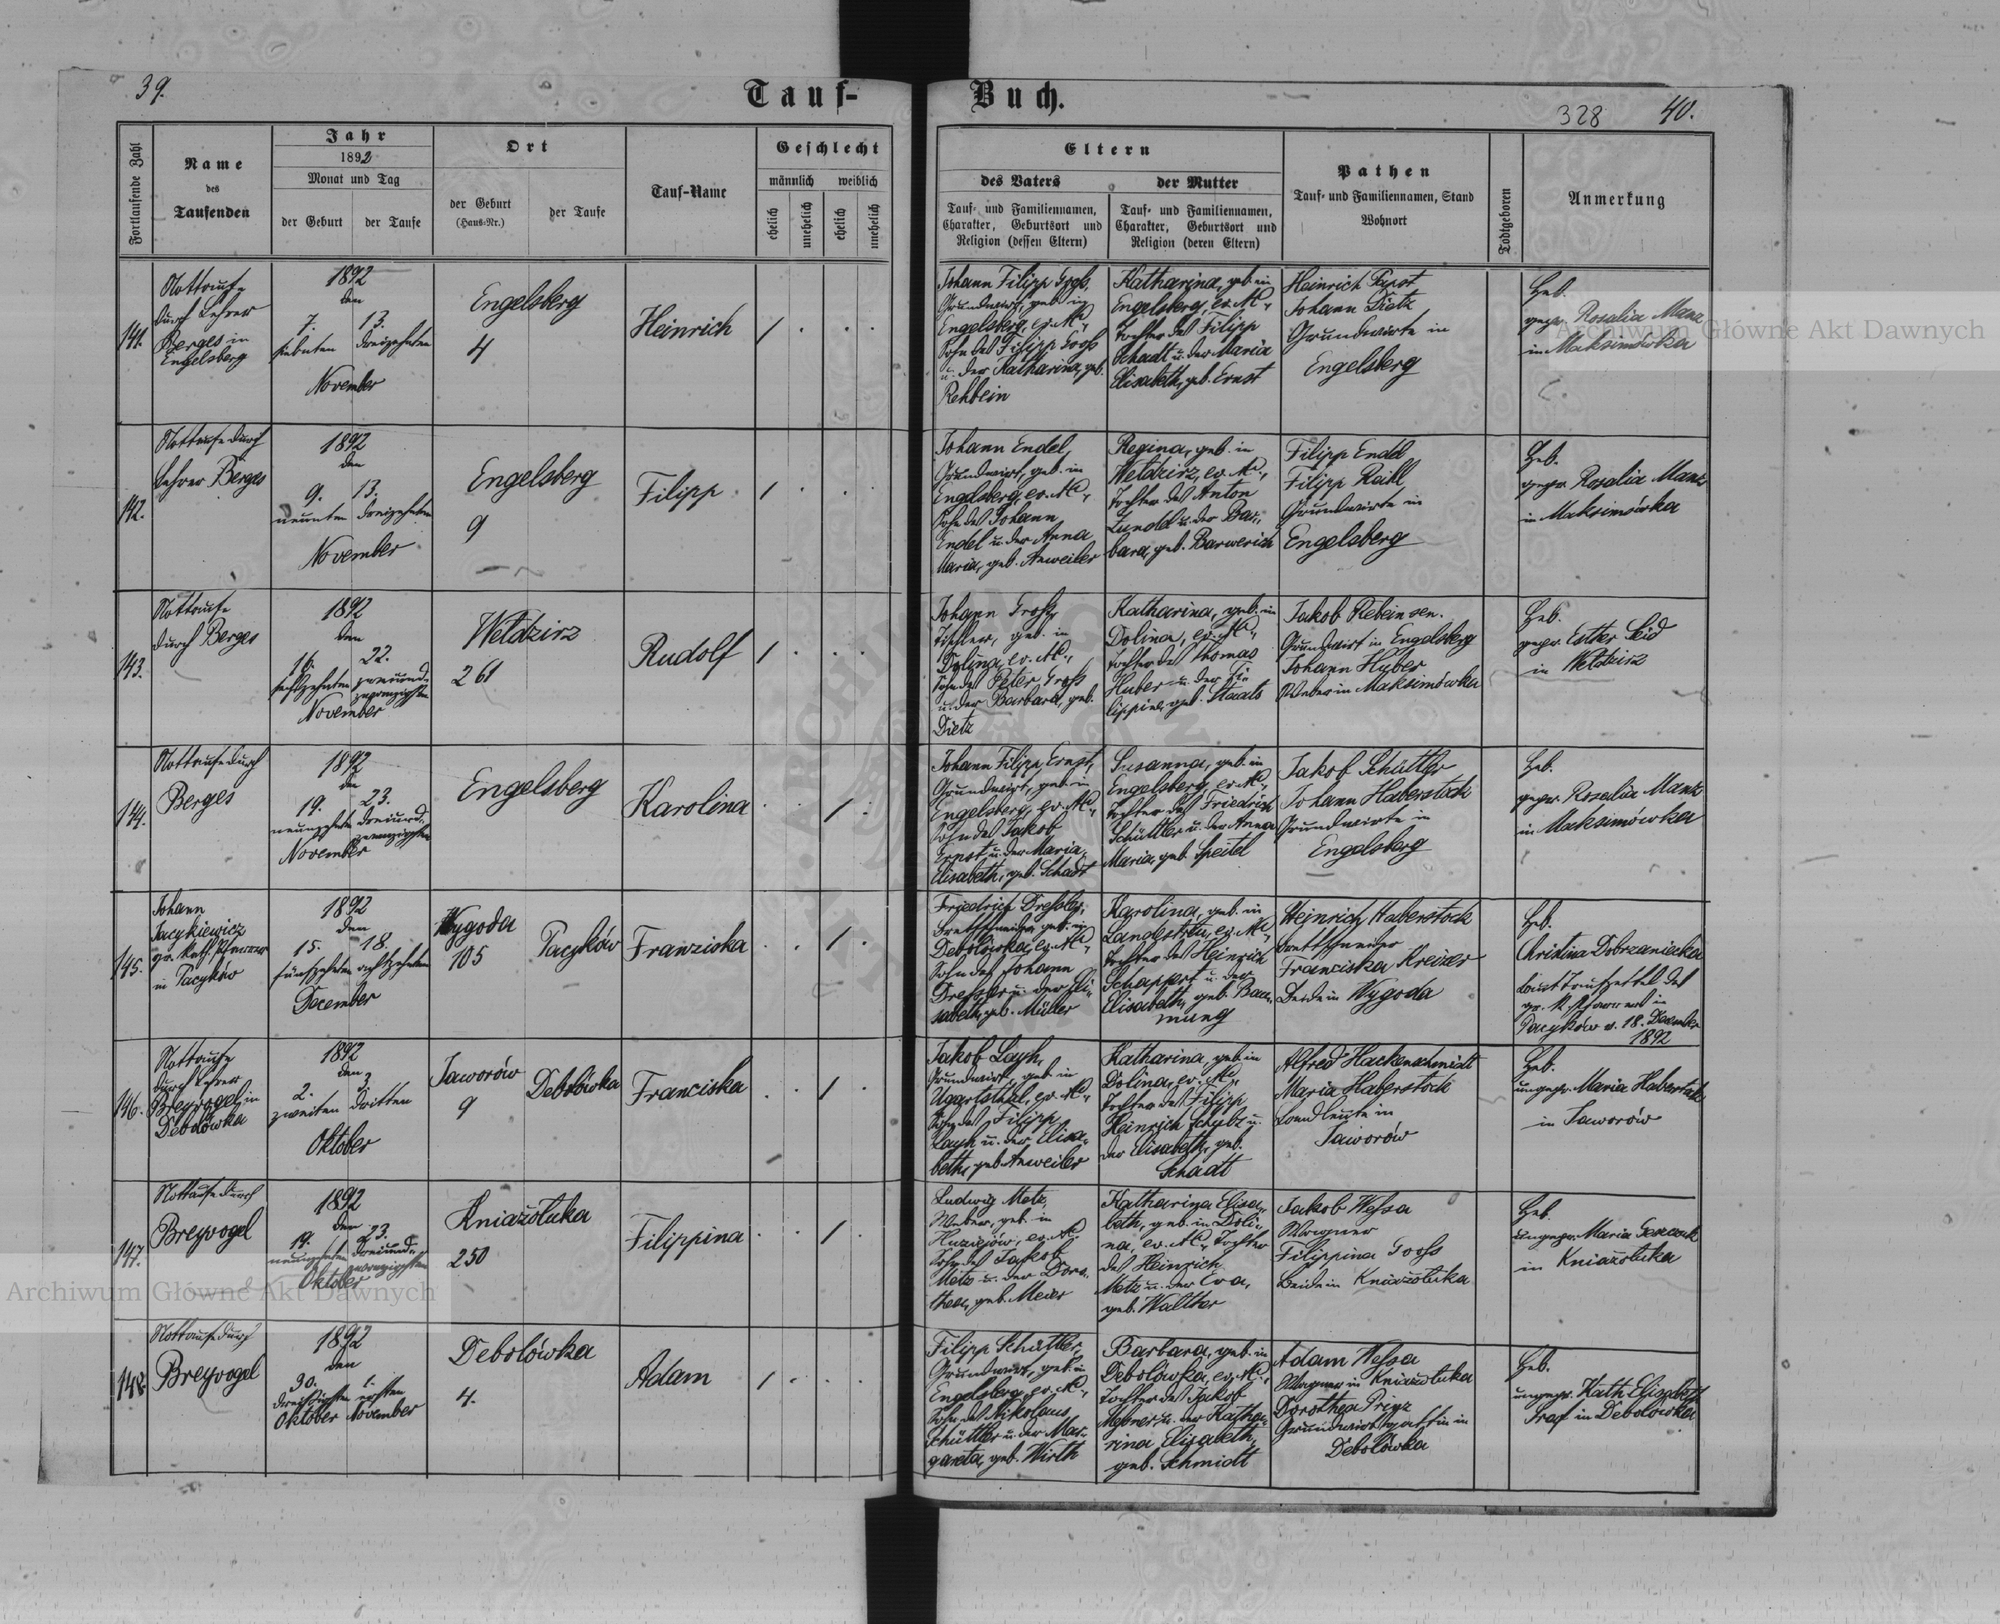 39.
Tauf-
Buch.
328
40.
Fortlaufende Zahl
Name
des
Taufenden
Jahr
1892
Monat und Tag
der Geburt
der Taufe
Ort
der Geburt
(Haus-Nr.)
der Taufe
Tauf-Name
Geschlecht
männlich
weiblich
ehelich
unehelich
ehelich
unehelich
Eltern
des Vaters
der Mutter
Tauf- und Familiennamen,
Charakter, Geburtsort und
Religion (dessen Eltern)
Tauf- und Familiennamen,
Charakter, Geburtsort und
Religion (deren Eltern)
Pathen
Tauf- und Familiennamen, Stand
Wohnort
Todtgeboren
Anmerkung
141.
Nottaufe
durch Lehrer
Berges in
Engelsberg
1892
den
7. 13.
siebenten dreizehnten
November
Engelsberg
4
Heinrich
/
Johann Filipp Gros,
Grundwirt, geb. in
Engelsberg, ev. A.C.,
Sohn des Filipp Goos
u. der Katharina, geb.
Rehbein
Katharina, geb. in
Engelsberg, ev. A.C.,
Tochter des Filipp
Schadt u. der Maria
Elisabeth, geb. Ernst
Heinrich
Johann Dietz
Grundwirte in
Engelsberg
Heb.
gepr. Rosalia Manz
in Maksimówka
142.
Nottaufe durch
Lehrer Berges
1892
den
9. 13.
neunten dreizehnten
November
Engelsberg
9
Filipp
/
Johann Endel,
Grundwirt, geb. in
Engelsberg, ev. A.C.,
Sohn des Johann
Endel u. der Anna
Maria, geb. Anweiler
Regina, geb. in
Weldzirz, ev. A.C.,
Tochter des Anton
Zunold u. der Bar-
bara, geb. Barwerich
Filipp Endel
Filipp
Grundwirte in
Engelsberg
Heb.
gepr. Rosalia Manz
in Maksimówka
143.
Nottaufe
durch Berges
1892
den
16. 22.
sechzehnten zweiund-
zwanzigsten
November
Weldzirz
261
Rudolf
/
Johann Gross,
Tischler, geb. in
Dolina, ev. A.C.,
Sohn des Peter Gross
u. der Barbara, geb.
Dietz
Katharina, geb. in
Dolina, ev. A.C.,
Tochter des Thomas
Huber u. der Fi-
lippine, geb. Staals
Jakob Rebein sen.
Grundwirt in Engelsberg
Johann Hyber
in Maksimówka
Heb.
gepr. Esther Seid
in Weldzirz
144.
Nottaufe durch
Berges
1892
den
19. 23.
neunzehnten dreiund-
zwanzigsten
November
Engelsberg
Karolina
/
Johann Filipp Ernst,
Grundwirt, geb. in
Engelsberg, ev. A.C.,
Sohn des Jakob
Ernst u. der Maria
Elisabeth, geb. Schadt
Susanna, geb. in
Engelsberg, ev. A.C.,
Tochter des Friedrich
Schüttler u. der Anna
Maria, geb. Speitel
Jakob Schüttler
Johann Haberstock
Grundwirte in
Engelsberg
Heb.
gepr. Rosalia Manz
in Maksimówka
145.
Johann
Jacykiewicz
gr. kath. Pfarrer
in Pacyków
1892
den
15. 18.
fünfzehnten achtzehnten
December
Wygoda
105
Pacyków
Franziska
/
Friedrich Dressler,
Brettschneider, geb. in
Debolówka, ev. A.C.,
Sohn des Johann
Dressler u. der Eli-
sabeth, geb. Müller
Karolina, geb. in
Landestreu, ev. A.C.,
Tochter des Heinrich
Schappert u. der
Elisabeth, geb. Bau-
mung
Heinrich Haberstock
Brettschneider
Franciska Kreizer
Beide in Wygoda
Heb.
Christina Dobrzaniecka
laut Taufzettel des
gr. k. Pfarramt in
Pacyków v. 18. December
1892
146.
Nottaufe
durch Lehrer
Breyvogel in
Debolówka
1892
den
2. 3.
zweiten dritten
Oktober
Jaworów
9
Debolówka
Franciska
/
Jakob Layh,
Grundwirt, geb. in
Ugartsthal, ev. A.C.,
Sohn des Filipp
Layh u. der Elisa-
beth, geb. Anweiler
Katharina, geb. in
Dolina, ev. A.C.,
Tochter des Filipp
Heinrich Schybz u.
der Elisabeth, geb.
Schadt
Alfred Hackenschmidt
Maria Haberstock
Landleute in
Jaworów
Heb.
ungepr. Maria Haberstock
in Jaworów
147.
Nottaufe durch
Breyvogel
1892
den
19. 23.
neunzehnten dreiund-
zwanzigsten
Oktober
Kniaźołuka
250
Filippina
/
Ludwig Metz,
Weber, geb. in
Huziejów, ev. A.C.
Sohn des Jakob
Metz u. der Doro-
thea, geb. Meier
Katharina Elisa-
beth, geb. in Doli-
na, ev. A.C., Tochter
des Heinrich
Metz u. der Eva,
geb. Walther
Jakob Wessa
Wagner
Filippina Gooss
Beide in Kniaźołuka
Heb.
ungepr. Maria
in Kniaźołuka
148.
Nottaufe durch
Breyvogel
1892
den
30. 1.
dreißigsten ersten
Oktober November
Debolówka
4.
Adam
/
Filipp Schüttler,
Grundwirt, geb. in
Engelsberg, ev. A.C.,
Sohn des Nikolaus
Schüttler u. der Mar-
gareta, geb. Wirth
Barbara, geb. in
Debolówka, ev. A.C.,
Tochter des Jakob
u. der Katha-
rina Elisabeth,
geb. Schmidt
Adam Wessa
Wagner in Kniaźołuka
Dorothea Prinz
Grundwirtsgattin in
Debolówka
Heb.
ungepr. Kath. Elisabeth
Graf in Debolówka
Archiwum Główne Akt Dawnych
Archiwum Główne Akt Dawnych